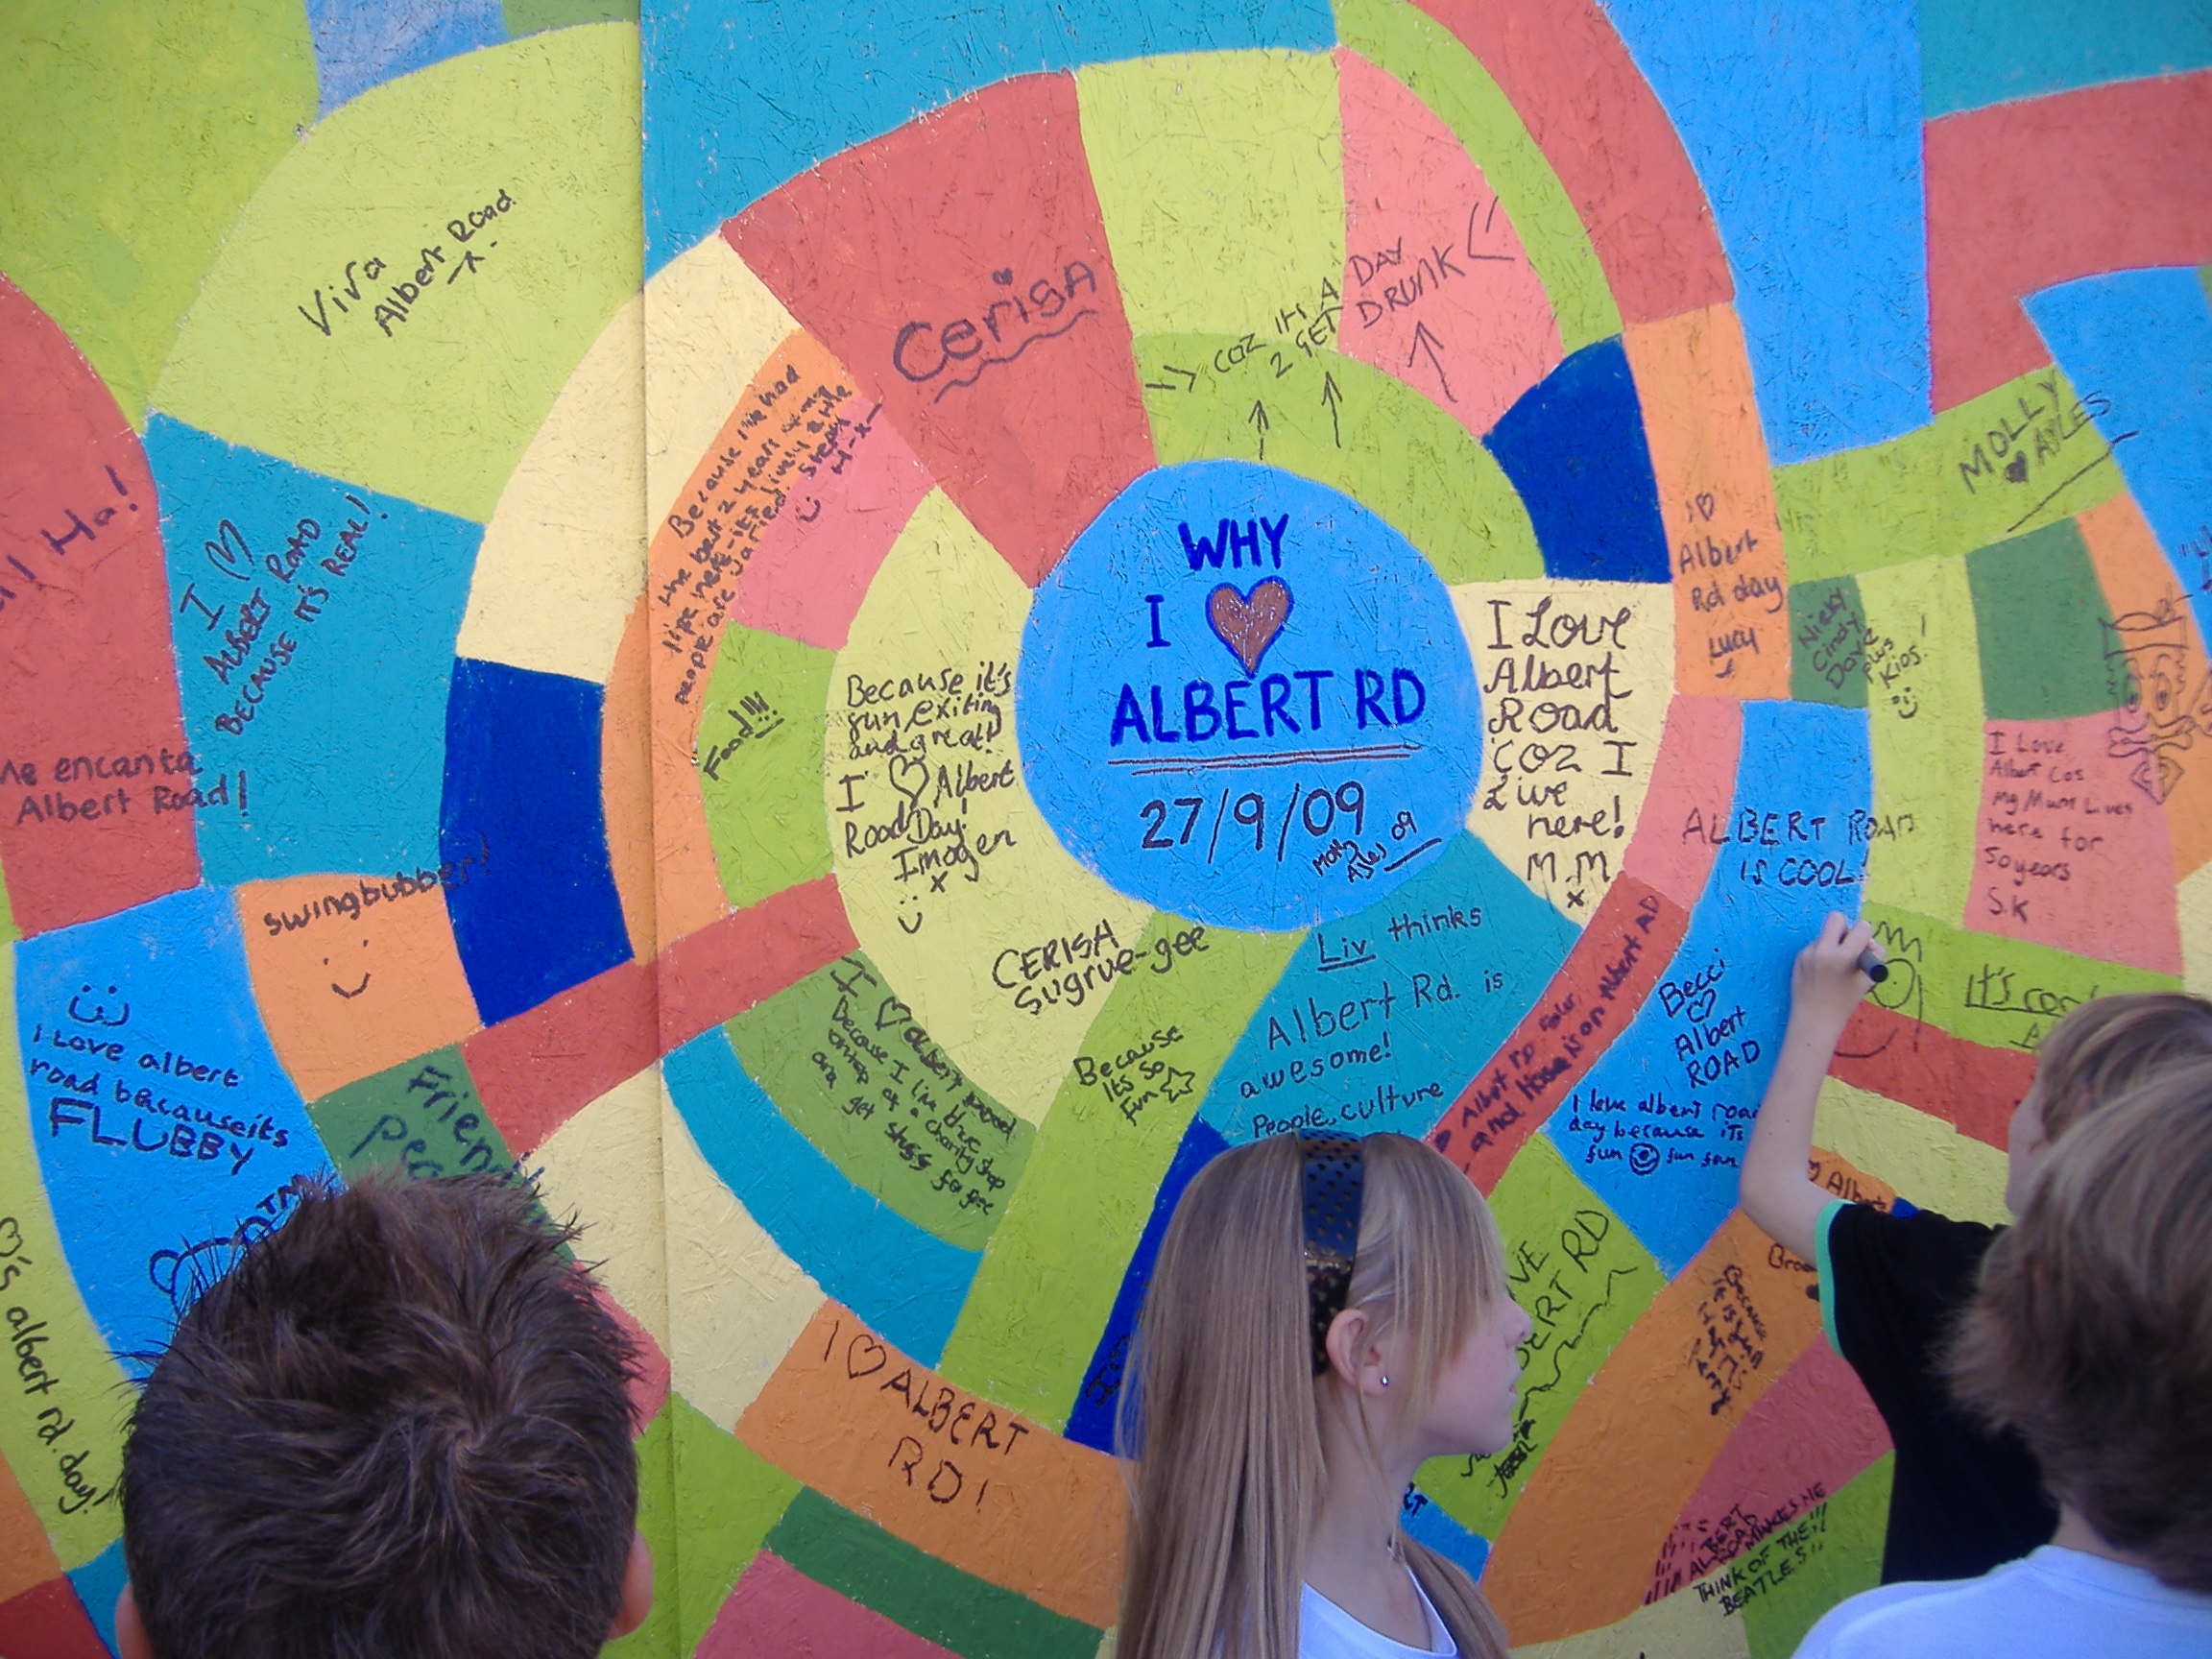 WHY
I ♡
ALBERT RD
27/9/09
Viva
Albert Road
Cerisa
COZ ITS A DAY
2 GET DRUNK
Ha!
I ♡
ALBERT ROAD
BECAUSE IT'S REAL!
Me encanta
Albert Road!
swingbubber!
I Love albert
road because its
FLUBBY
Because I've had
the best 2 years of my
life here - it's lively & the
people are varied. Steph
H-x-
Food!!!
Because it's
fun, exiting
and great!
I ♡ Albert
Road Day!
Imogen
x
CERISA
Sugrue-gee
I ♡ albert road
Because I live
ontop of a charity shop
and get stuff for free
Because
Its so
fun
Liv thinks
Albert Rd. is
awesome!
People, culture
I Love
Albert
Road
COZ I
Live
here!
M M
x
I ♡
Albert
Rd day
Lucy
MOLLY
♡ AYLES
Nicky
Cindy
Dave
plus
Kids!
I Love
Albert Cos
My Mum Lives
here for
50 years
S.K
ALBERT ROAD
IS COOL!
Becci
♡
Albert
ROAD
I love albert road
day because its
fun fun fun
Albert Rd
and House is on Albert RD
It's
♡'s albert rd. day!
I ♡ ALBERT
RD!
BERT RD
Albert
Because
it is fun
ALBERT
ROAD MAKES ME
THINK OF THE!!!
BEATLES!!